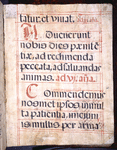 tatur, et vivat.
Advenerunt
nobis dies pænitē
tiæ, ad redimenda
peccata, ad salvandas
animas.
Commendemus
nosmet ipsos in mul
ta patientia, in jejuni
is multis per arma